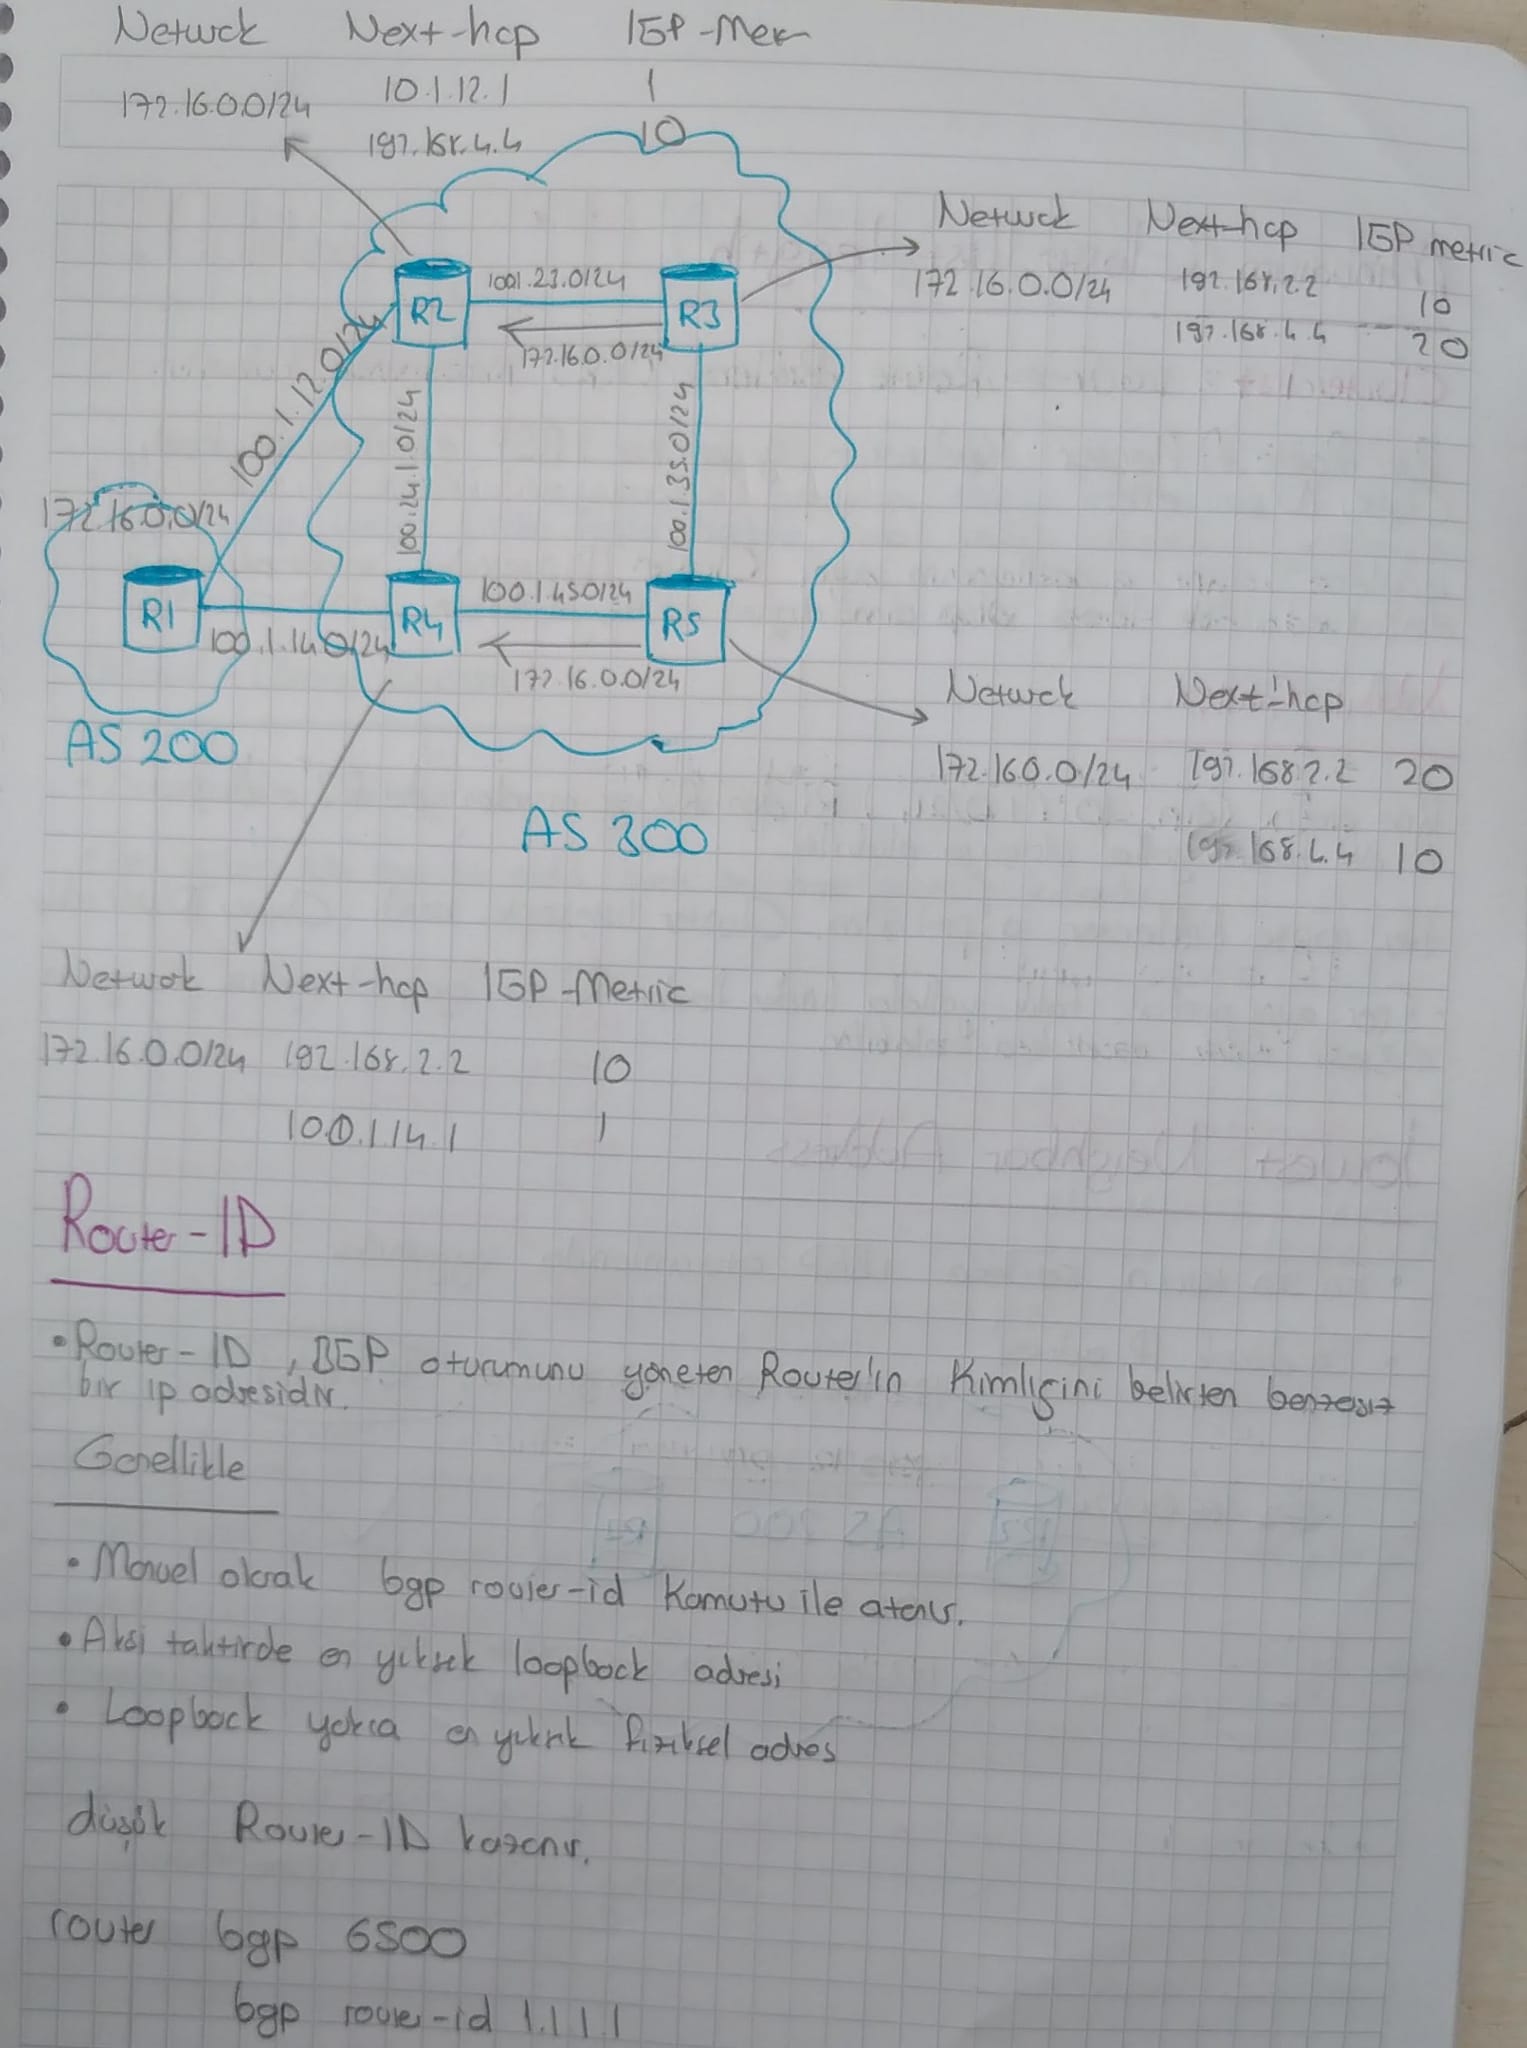 Network Next-hop IGP-Met
172.16.0.0/24 10.1.12.1 1
192.168.4.4 10
Network Next-hop IGP metric
172.16.0.0/24 192.168.2.2 10
192.168.4.4 20
R2
1001.23.0/24
R3
172.16.0.0/24
100.1.12.0/24
100.24.1.0/24
100.1.35.0/24
172.16.0.0/24
R1
100.1.14.0/24
R4
100.1.45.0/24
R5
172.16.0.0/24
AS 200
AS 300
Network Next-hop
172.16.0.0/24 192.168.2.2 20
192.168.4.4 10
Network Next-hop IGP-Metric
172.16.0.0/24 192.168.2.2 10
100.1.14.1 1
Router-ID
• Router-ID, BGP oturumunu yöneten Router'ın Kimliğini belirten benzersiz
bir ip adresidir.
Genellikle
• Manuel olarak bgp router-id Komutu ile atanır.
• Aksi taktirde en yüksek loopback adresi
• Loopback yoksa en yüksek fiziksel adres
düşük Router-ID kazanır.
router bgp 6500
bgp router-id 1.1.1.1